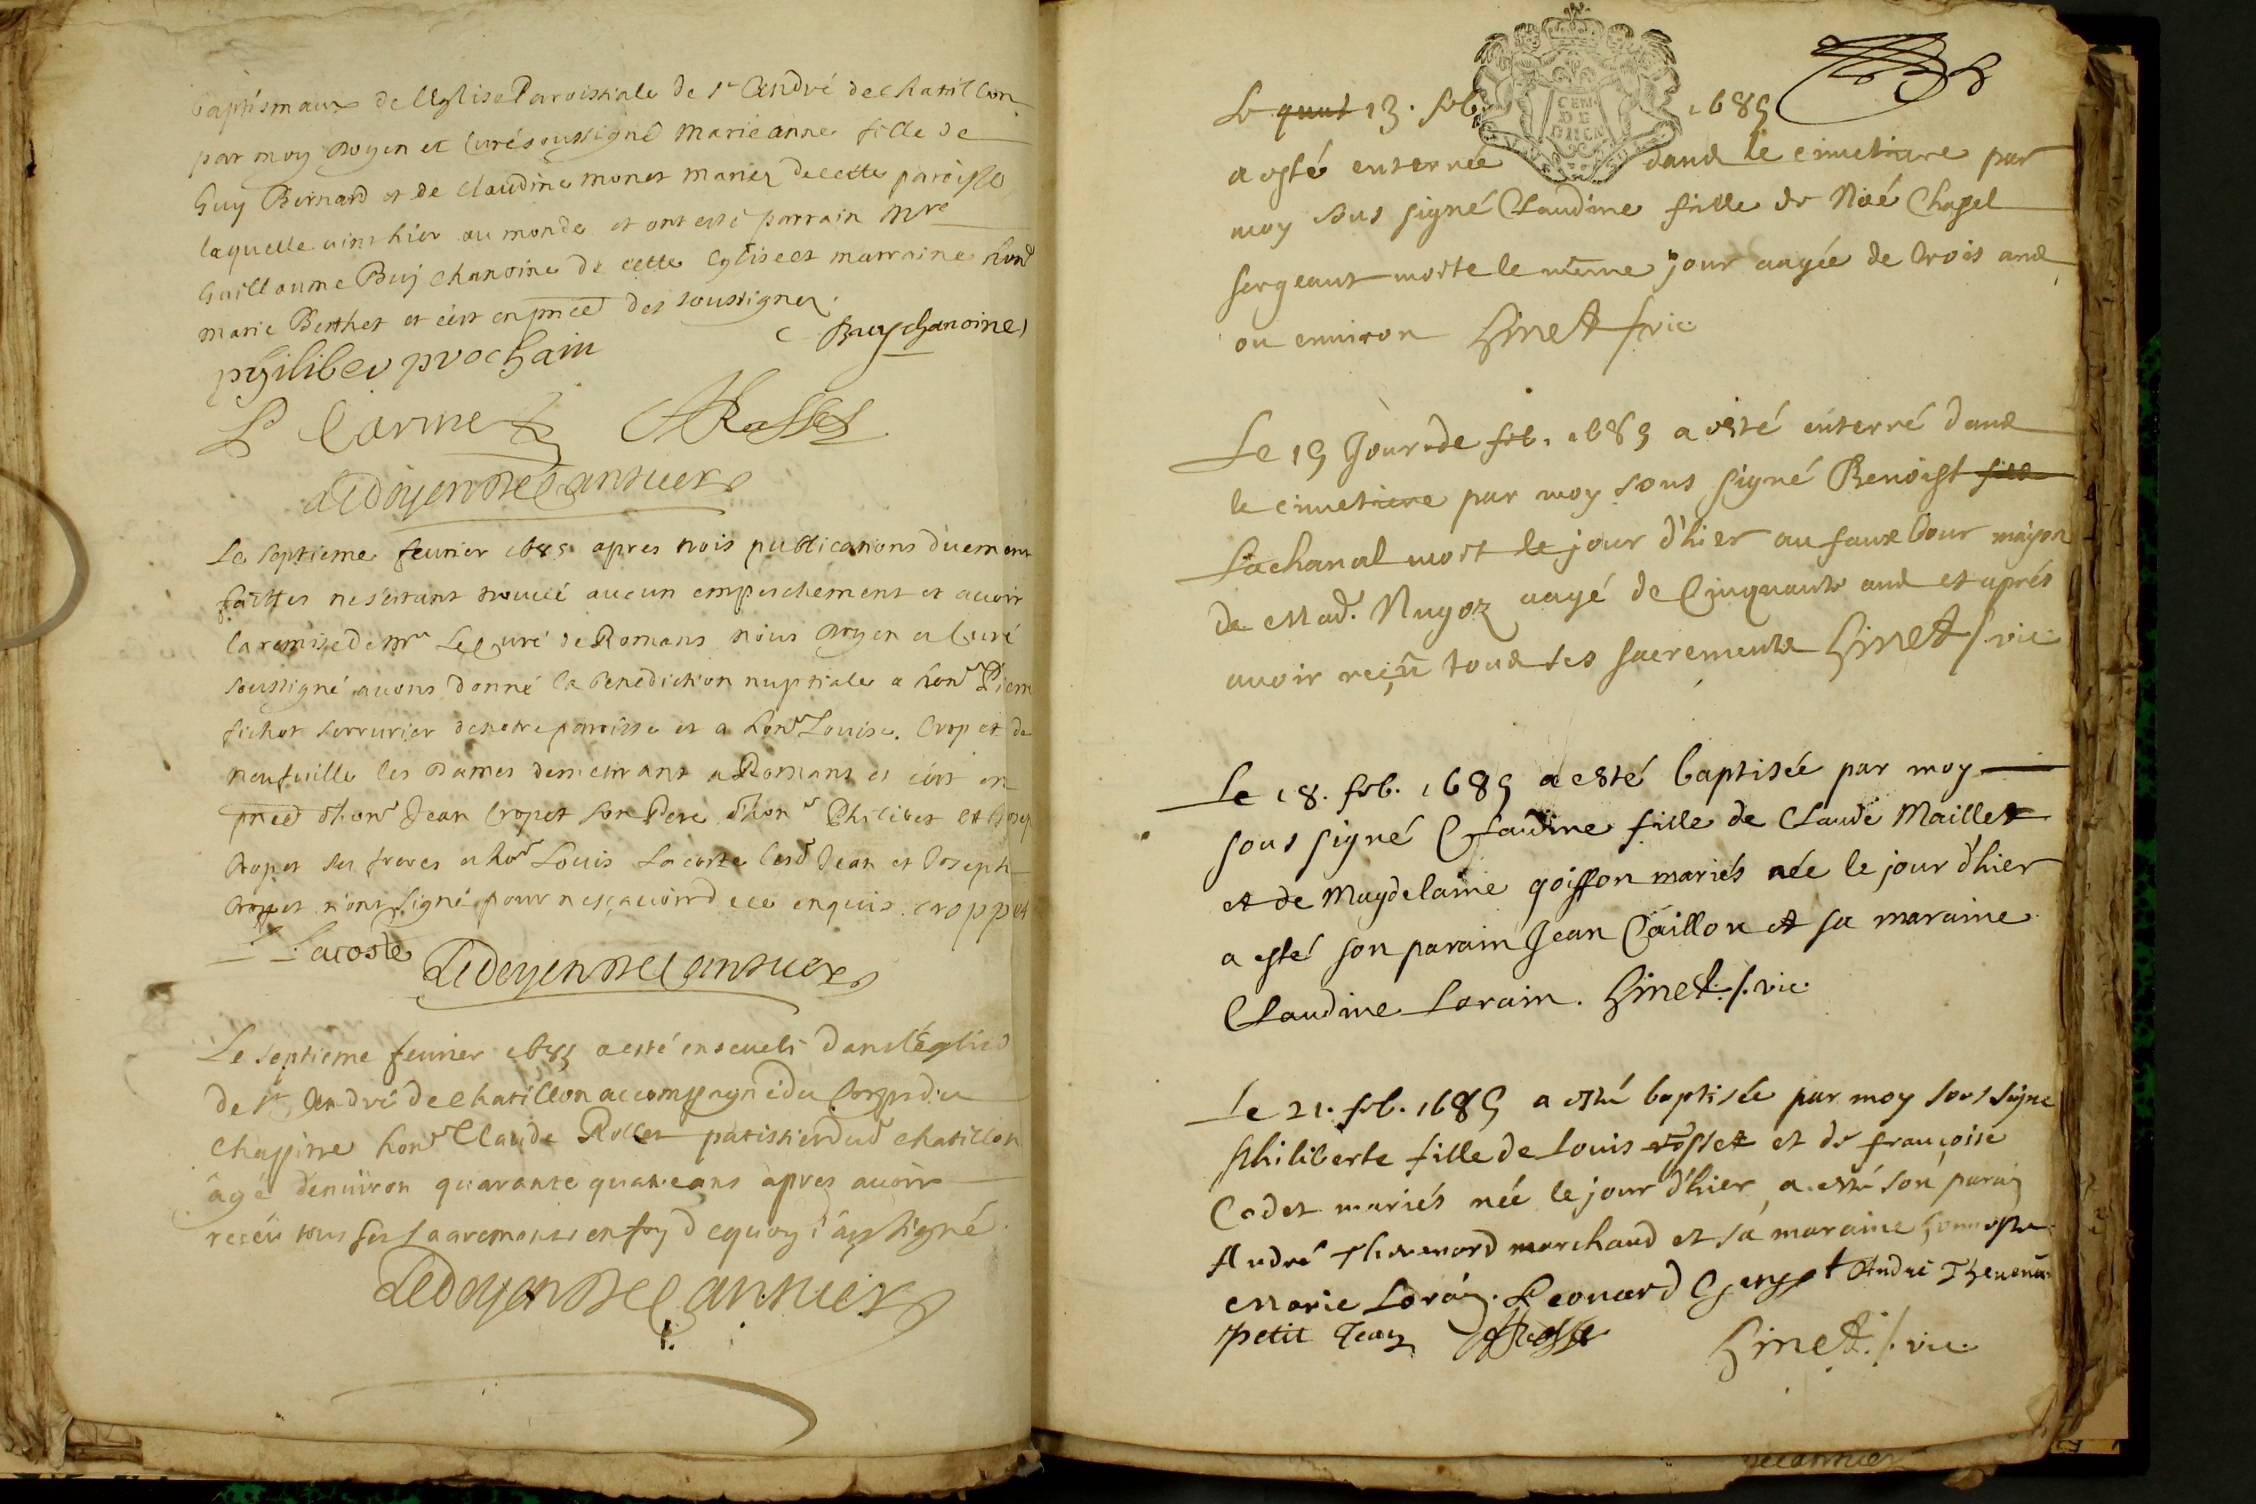 baptismaux de l'Eglise Paroissiale de st André de chatillon
par moy Doyen et Curé soussigné Marie anne fille de
Guy Bernard et de Claudine monet mariez de cette paroisse
laquelle vint hier au monde et ont esté parrain Mre
Guillaume Buy chanoine de cette Eglise et marraine hond
marie Berthet et c'est en pnce des soussignez.
Buy chanoine
philiber prochain
Carme
ARosset
Ledoyen De Cannuers
Le septieme feurier 1685 apres trois publications düement
faittes ne s'estant trouué aucun empeschement et auoir
la remise de Mr Le Curé de Romans nous Doyen et Curé
soussigné auons donné la benediction nuptiale a honr Pierre
fichet serrurier de notre paroisse et a honr Louise. Cropet de
neufuille les Dames demeurant a Romans et c'est en
pnce d'honr Jean Cropet son Pere d'honr Philibert et Joseph
Cropet ses freres et honr Louis Lacoste lesd Jean et Joseph
Cropet n'ont signé pour ne sçauoir de ce enquis. croppet
L Lacoste
Ledoyen De Cannuers
Le septieme feurier 1685 a esté enseueli dans l'Eglise
de st André de Chatillon accompagné du Corps du
Chappitre honr Claude Rollet patissier dud chatillon
âgé d'enuiron quarante quatre ans apres auoir
receu tous ses Sacremens en foy de quoy i'ay signé.
Ledoyen De Cannuers
Le quat 13. feb. 1685
CEN
DE
a esté enterrée dans le cimetiere par
moy sous signé Claudine fille de Noé Chapel
sergeant morte le même jour aagée de trois ans
ou enuiron Ginet / vic.
Le 15 Jour de feb. 1685 a esté enterré dans
le cimetiere par moy sous signé Benoist fille
Lachanal mort le jour d'hier au faux bour maison
de Mad. Nugoz aagé de Cinquante ans et aprés
auoir reçu tous ses sacrements Ginet / vic.
Le 18. feb. 1685 a esté baptisée par moy
sous signé Claudine fille de Claude Maillet
et de Magdelaine goiffon mariés née le jour d'hier
a esté son parain Jean Caillon et sa maraine
Claudine Lorain. Ginet. /. vic.
Le 21. feb. 1685 a esté baptisée par moy sous signe
philiberte fille de Louis rosset et de françoise
Cadet mariés née le jour d'hier a esté son parain
André Theuenard marchand et sa maraine honneste
Marie Lorain. Leonard André Theuenard
petit Jean ARosset
Ginet. /. vic.